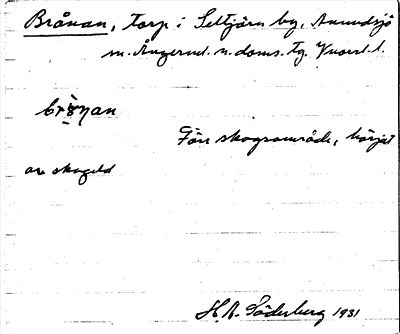 Brånan, torp i Seltjärn by, Anundsjö
m. Ångerml. n. doms. tg. V:norrl. l.
Förr skogsområde, härjat
av skogeld
H. A. Söderberg 1931